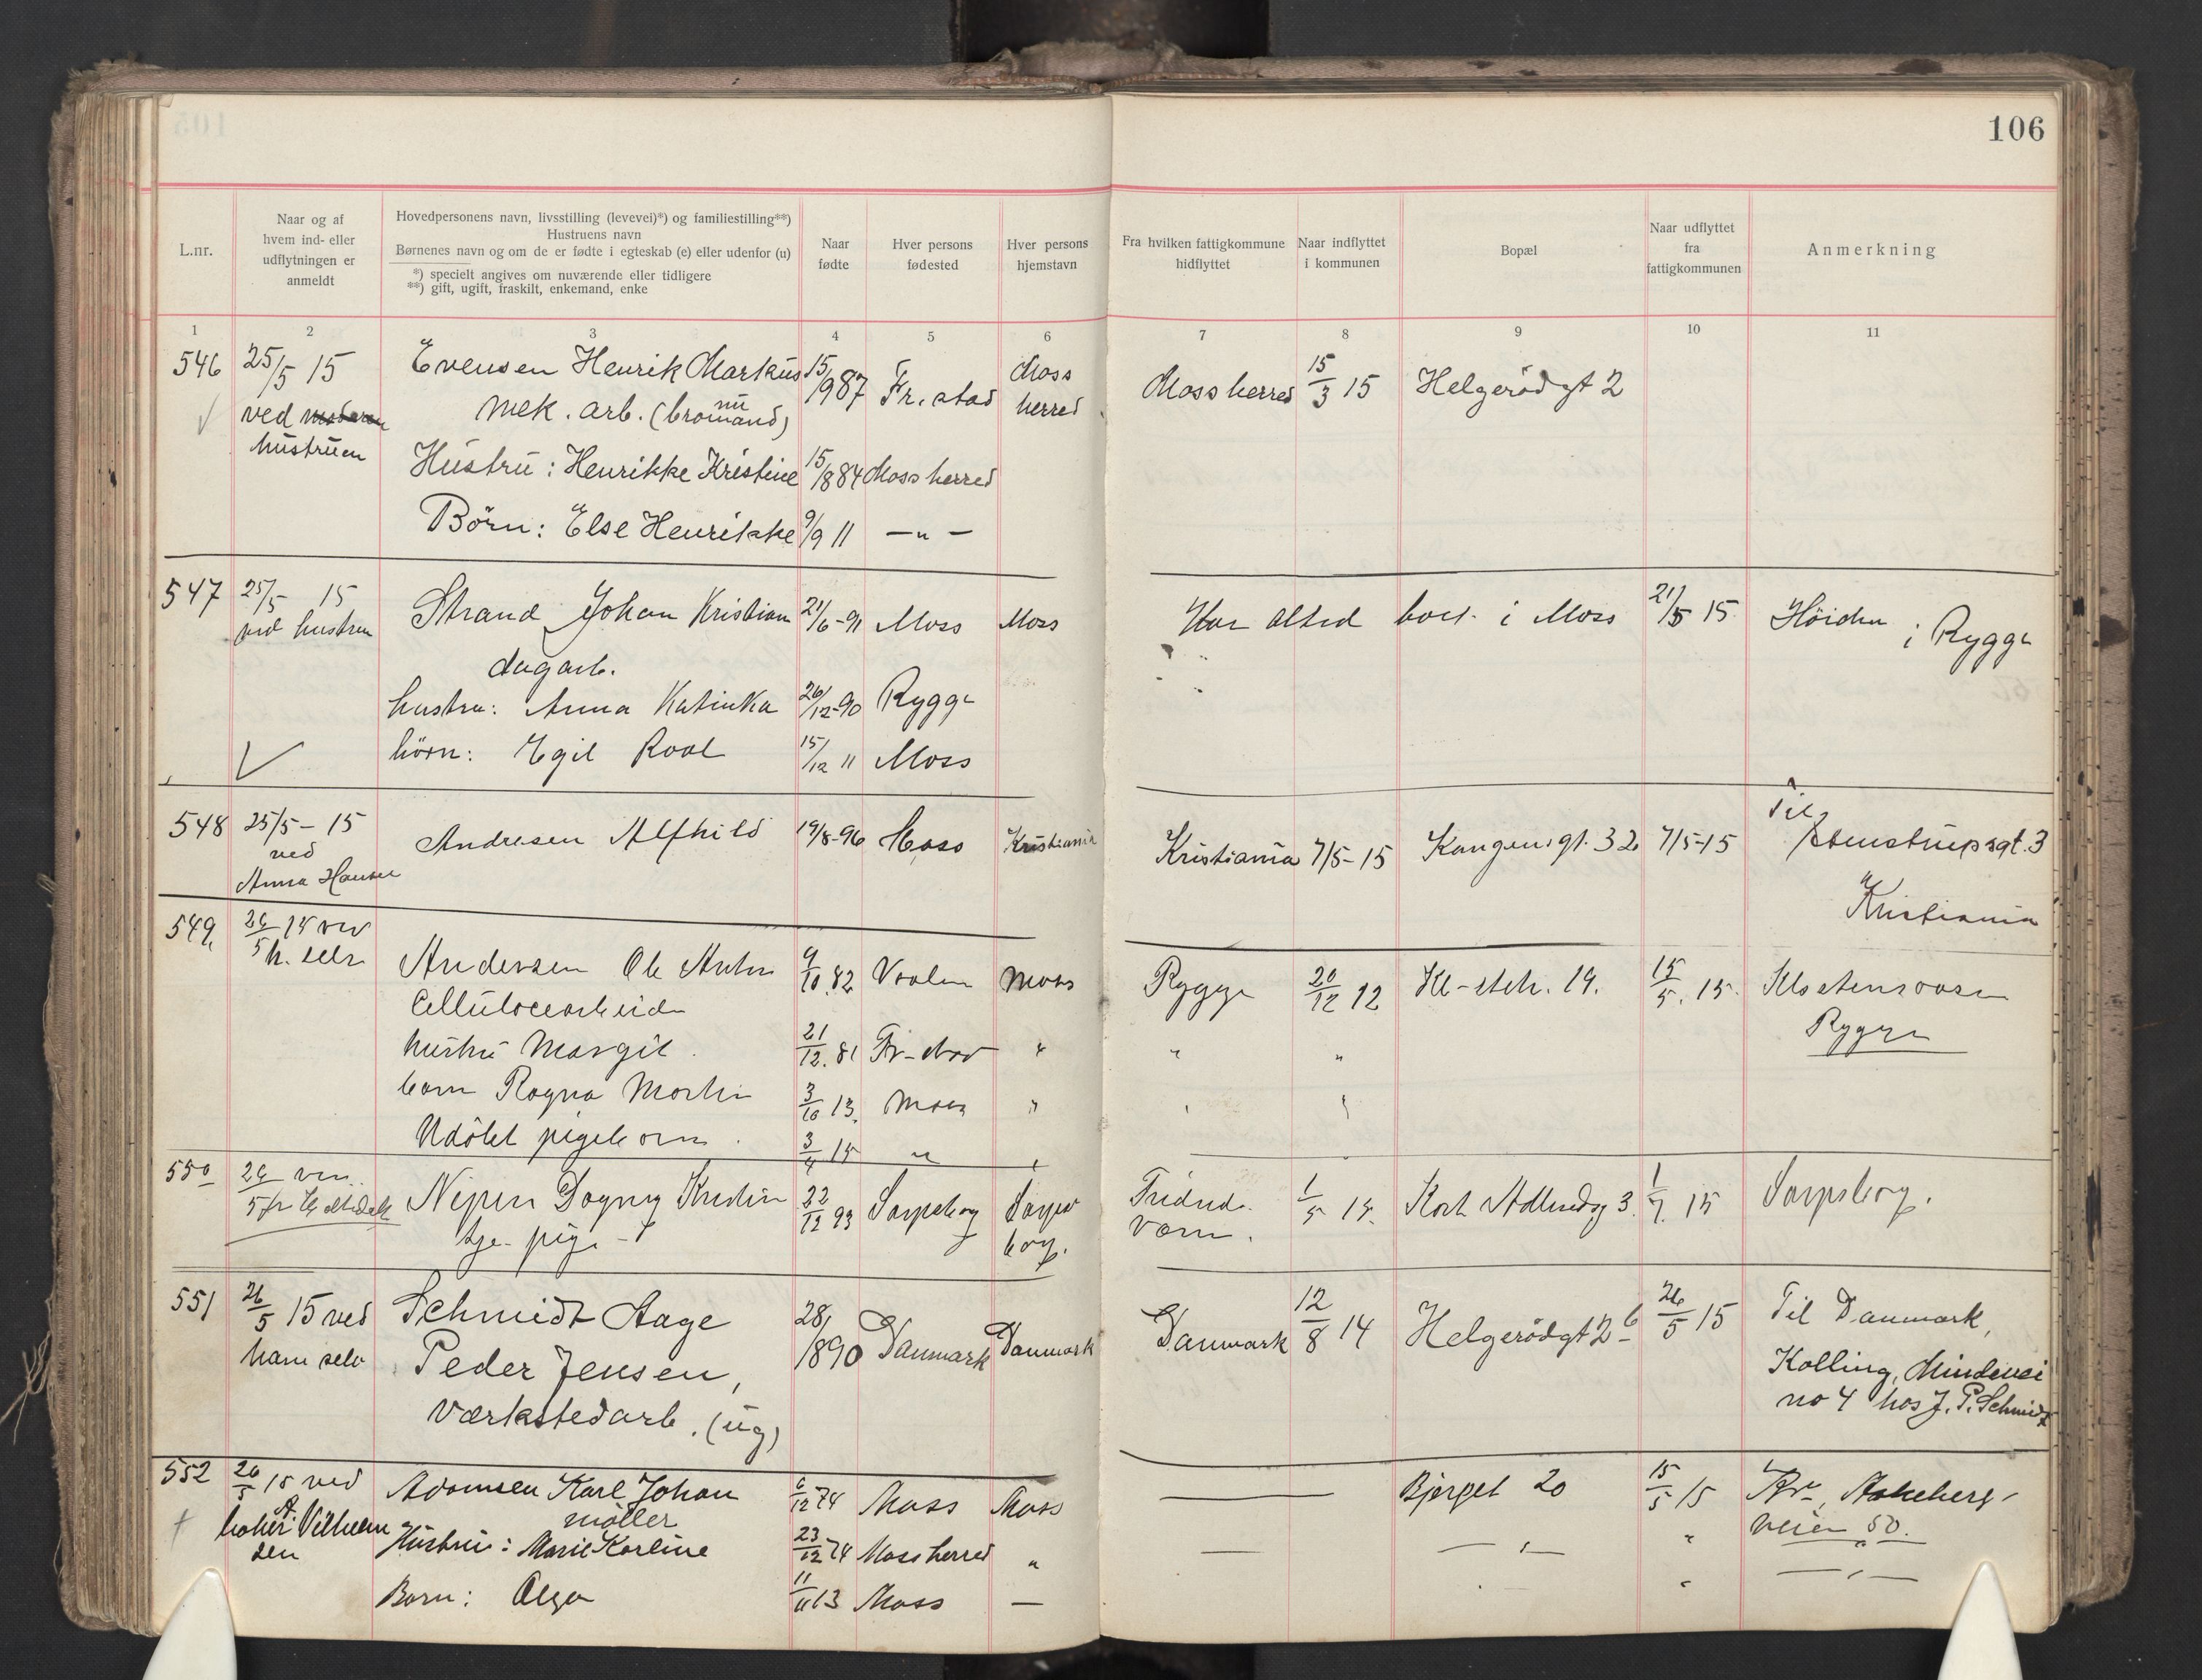 106
L.nr.
Naar og af
hvem ind- eller
udflytningen er
anmeldt
Hovedpersonens navn, livsstilling (levevei)*) og familiestilling**)
Hustruens navn
Børnenes navn og om de er fødte i egteskab (e) eller udenfor (u)
*) specielt angives om nuværende eller tidligere
**) gift, ugift, fraskilt, enkemand, enke
Naar
fødte
Hver persons
fødested
Hver persons
hjemstavn
Fra hvilken fattigkommune
hidflyttet
Naar indflyttet
i kommunen
Bopæl
Naar udflyttet
fra
fattigkommunen
Anmerkning
1 2 3 4 5 6 7 8 9 10 11
546 25/5 15 Evensen Henrik Markus 15/9 87 Fr.stad Moss herred Moss herred 15/3 15 Helgerødgt 2
ved hustruen mek. arb. (nu bromand)
Hustru: Henrikke Kristine 15/8 84 Moss herred
Børn: Else Henrikke 9/9 11 — " —
547 25/5 15 Strand Johan Kristian 21/6-91 Moss Moss Har altid boet i Moss 21/5 15 Höiden i Rygge
ved hustru dagarb.
hustru: Anna Katinka 26/12-90 Rygge
börn: Egil Roal 15/12 11 Moss
548 25/5-15 Andresen Alfhild 19/8-96 Moss Kristiania Kristiania 7/5-15 Kongensgt. 32 7/5-15 Til Stenstrupsgt. 3
ved
Anna Hansen
Kristiania
549. 26/5 15 ved Andersen Ole Anton 9/10.82 Vaaler Moss Rygge 20/12 12 Kl-stch. 19. 15/5.15.
h. selv Cellulosearbeider Rygge
hustru Margit. 21/12.81 Fr-stad " " "
barn Ragna 3/10 13. Moss "
Udöbt pigebarn. 3/4 15 "
550 26/5 Nipen Dagny Kristin 22/12 93 Sarpsborg Sarpsborg. Fridriksvärn. 1/5 15. Kort Adlersg 3. 15 Sarpsborg.
tje- pige -
551 26/5 15 ved Schmidt Aage 28/1 890 Danmark Danmark Danmark 12/8 14 Helgerødgt 2 b 26/5 15 Til Danmark,
ham selv Peder Jensen, Kolding, Mindevei
Værkstedarb. (ug) no 4 hos J. P. Schmidt
552 26/5 15 ved Adamsen Karl Johan 6/12 74 Moss Moss — Bjerget 20 15/5 15 Kr-, Aakeberg-
A. Vilhelmsen møller veien 50.
Hustru: Marie Karline 23/12 74 Moss herred " — — " — "
Barn: Olga 11/11 13 Moss — " — " —